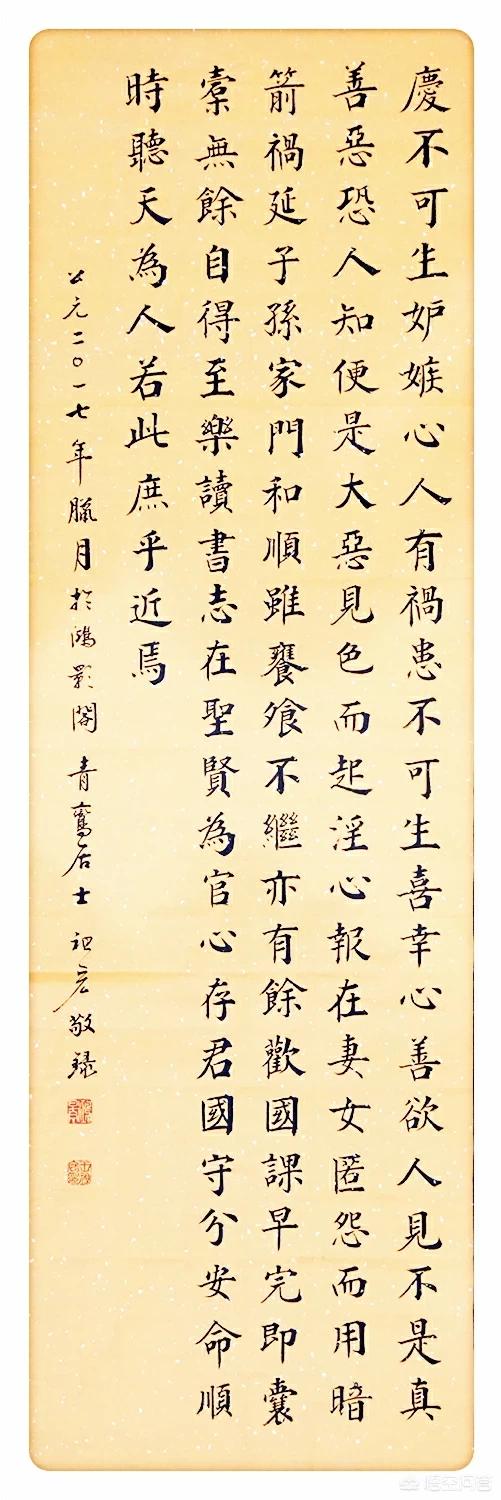 慶不可生妒嫉心人有禍患不可生喜幸心善欲人見不是真
善惡恐人知便是大惡見色而起淫心報在妻女匿怨而用暗
箭禍延子孫家門和順雖饔飧不繼亦有餘歡國課早完即囊
橐無餘自得至樂讀書志在聖賢為官心存君國守分安命順
時聽天為人若此庶乎近焉
公元二〇一七年臘月於鴻影閣青鸞居士宏敬録
悟空问答